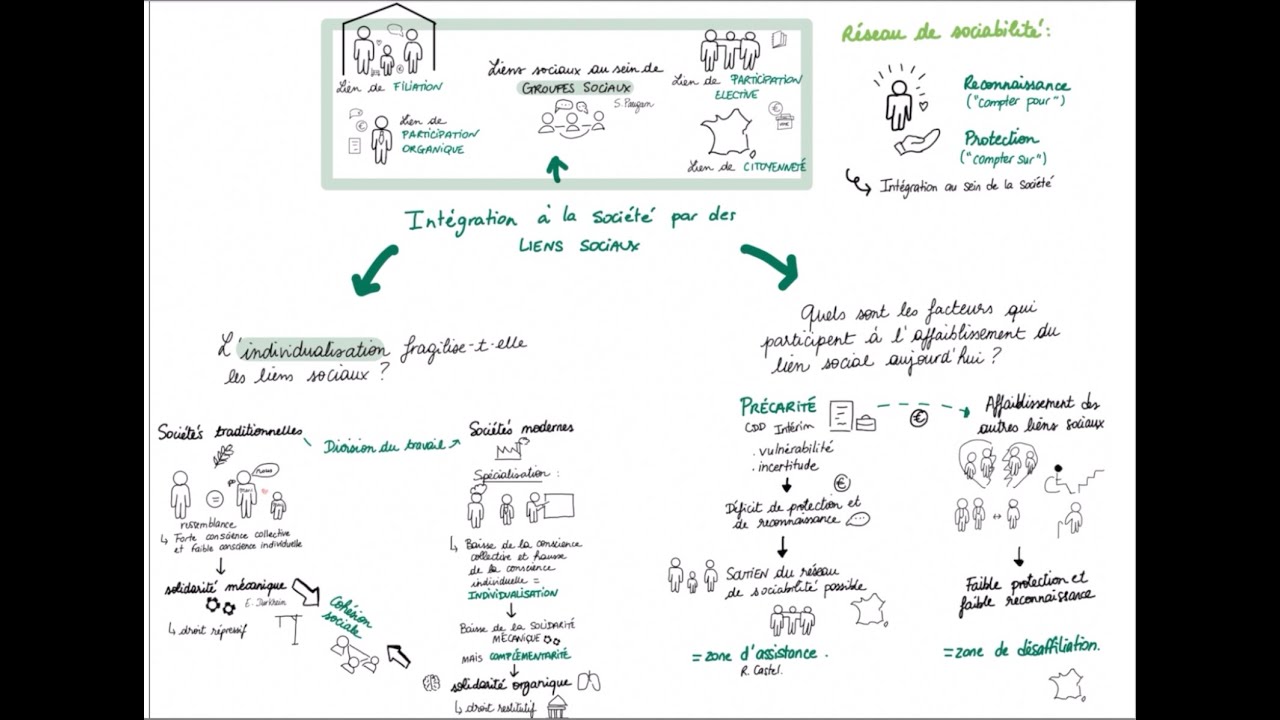 Lien de FILIATION
Lien de
PARTICIPATION
ORGANIQUE
Liens sociaux au sein de
GROUPES SOCIAUX
S. Paugam
Lien de PARTICIPATION
ELECTIVE
Lien de CITOYENNETÉ
Réseau de sociabilité :
Reconnaissance
("compter pour")
Protection
("compter sur")
Intégration au sein de la société
Intégration à la société par des
LIENS SOCIAUX
L'individualisation fragilise-t-elle
les liens sociaux ?
Sociétés traditionnelles
Division du travail
Sociétés modernes
=
ressemblance
Forte conscience collective
et faible conscience individuelle
solidarité mécanique
E. Durkheim
droit répressif
Cohésion
sociale
Spécialisation :
Baisse de la conscience
collective et hausse
de la conscience
individuelle =
INDIVIDUALISATION
Baisse de la SOLIDARITÉ
MÉCANIQUE
MAIS COMPLÉMENTARITÉ
solidarité organique
droit restitutif
Quels sont les facteurs qui
participent à l'affaiblissement du
lien social aujourd'hui ?
PRÉCARITÉ
CDD Intérim
. vulnérabilité
. incertitude
€
€
Déficit de protection et
de reconnaissance
SOUTIEN du réseau
de sociabilité possible
= zone d'assistance.
R. Castel.
Affaiblissement des
autres liens sociaux
Faible protection et
faible reconnaissance
= zone de désaffiliation.